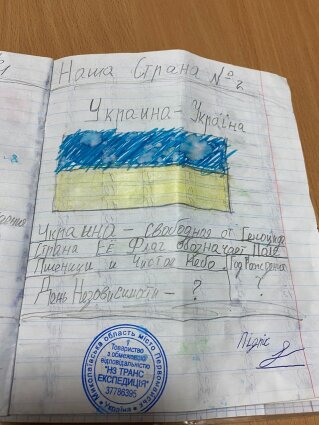 Наша Страна №2
Украина - Україна
Украина - свободная от Геноцида
Страна Её Флаг обозначает Поле
Пшеницы и Чистое Небо. Год Рождения
?
День Незовисимости - ?
Підпіс
Миколаївська область місто Первомайськ
Товариство
з обмеженою
відповідальністю
"НЗ ТРАНС
ЕКСПЕДИЦІЯ"
37786395
Україна